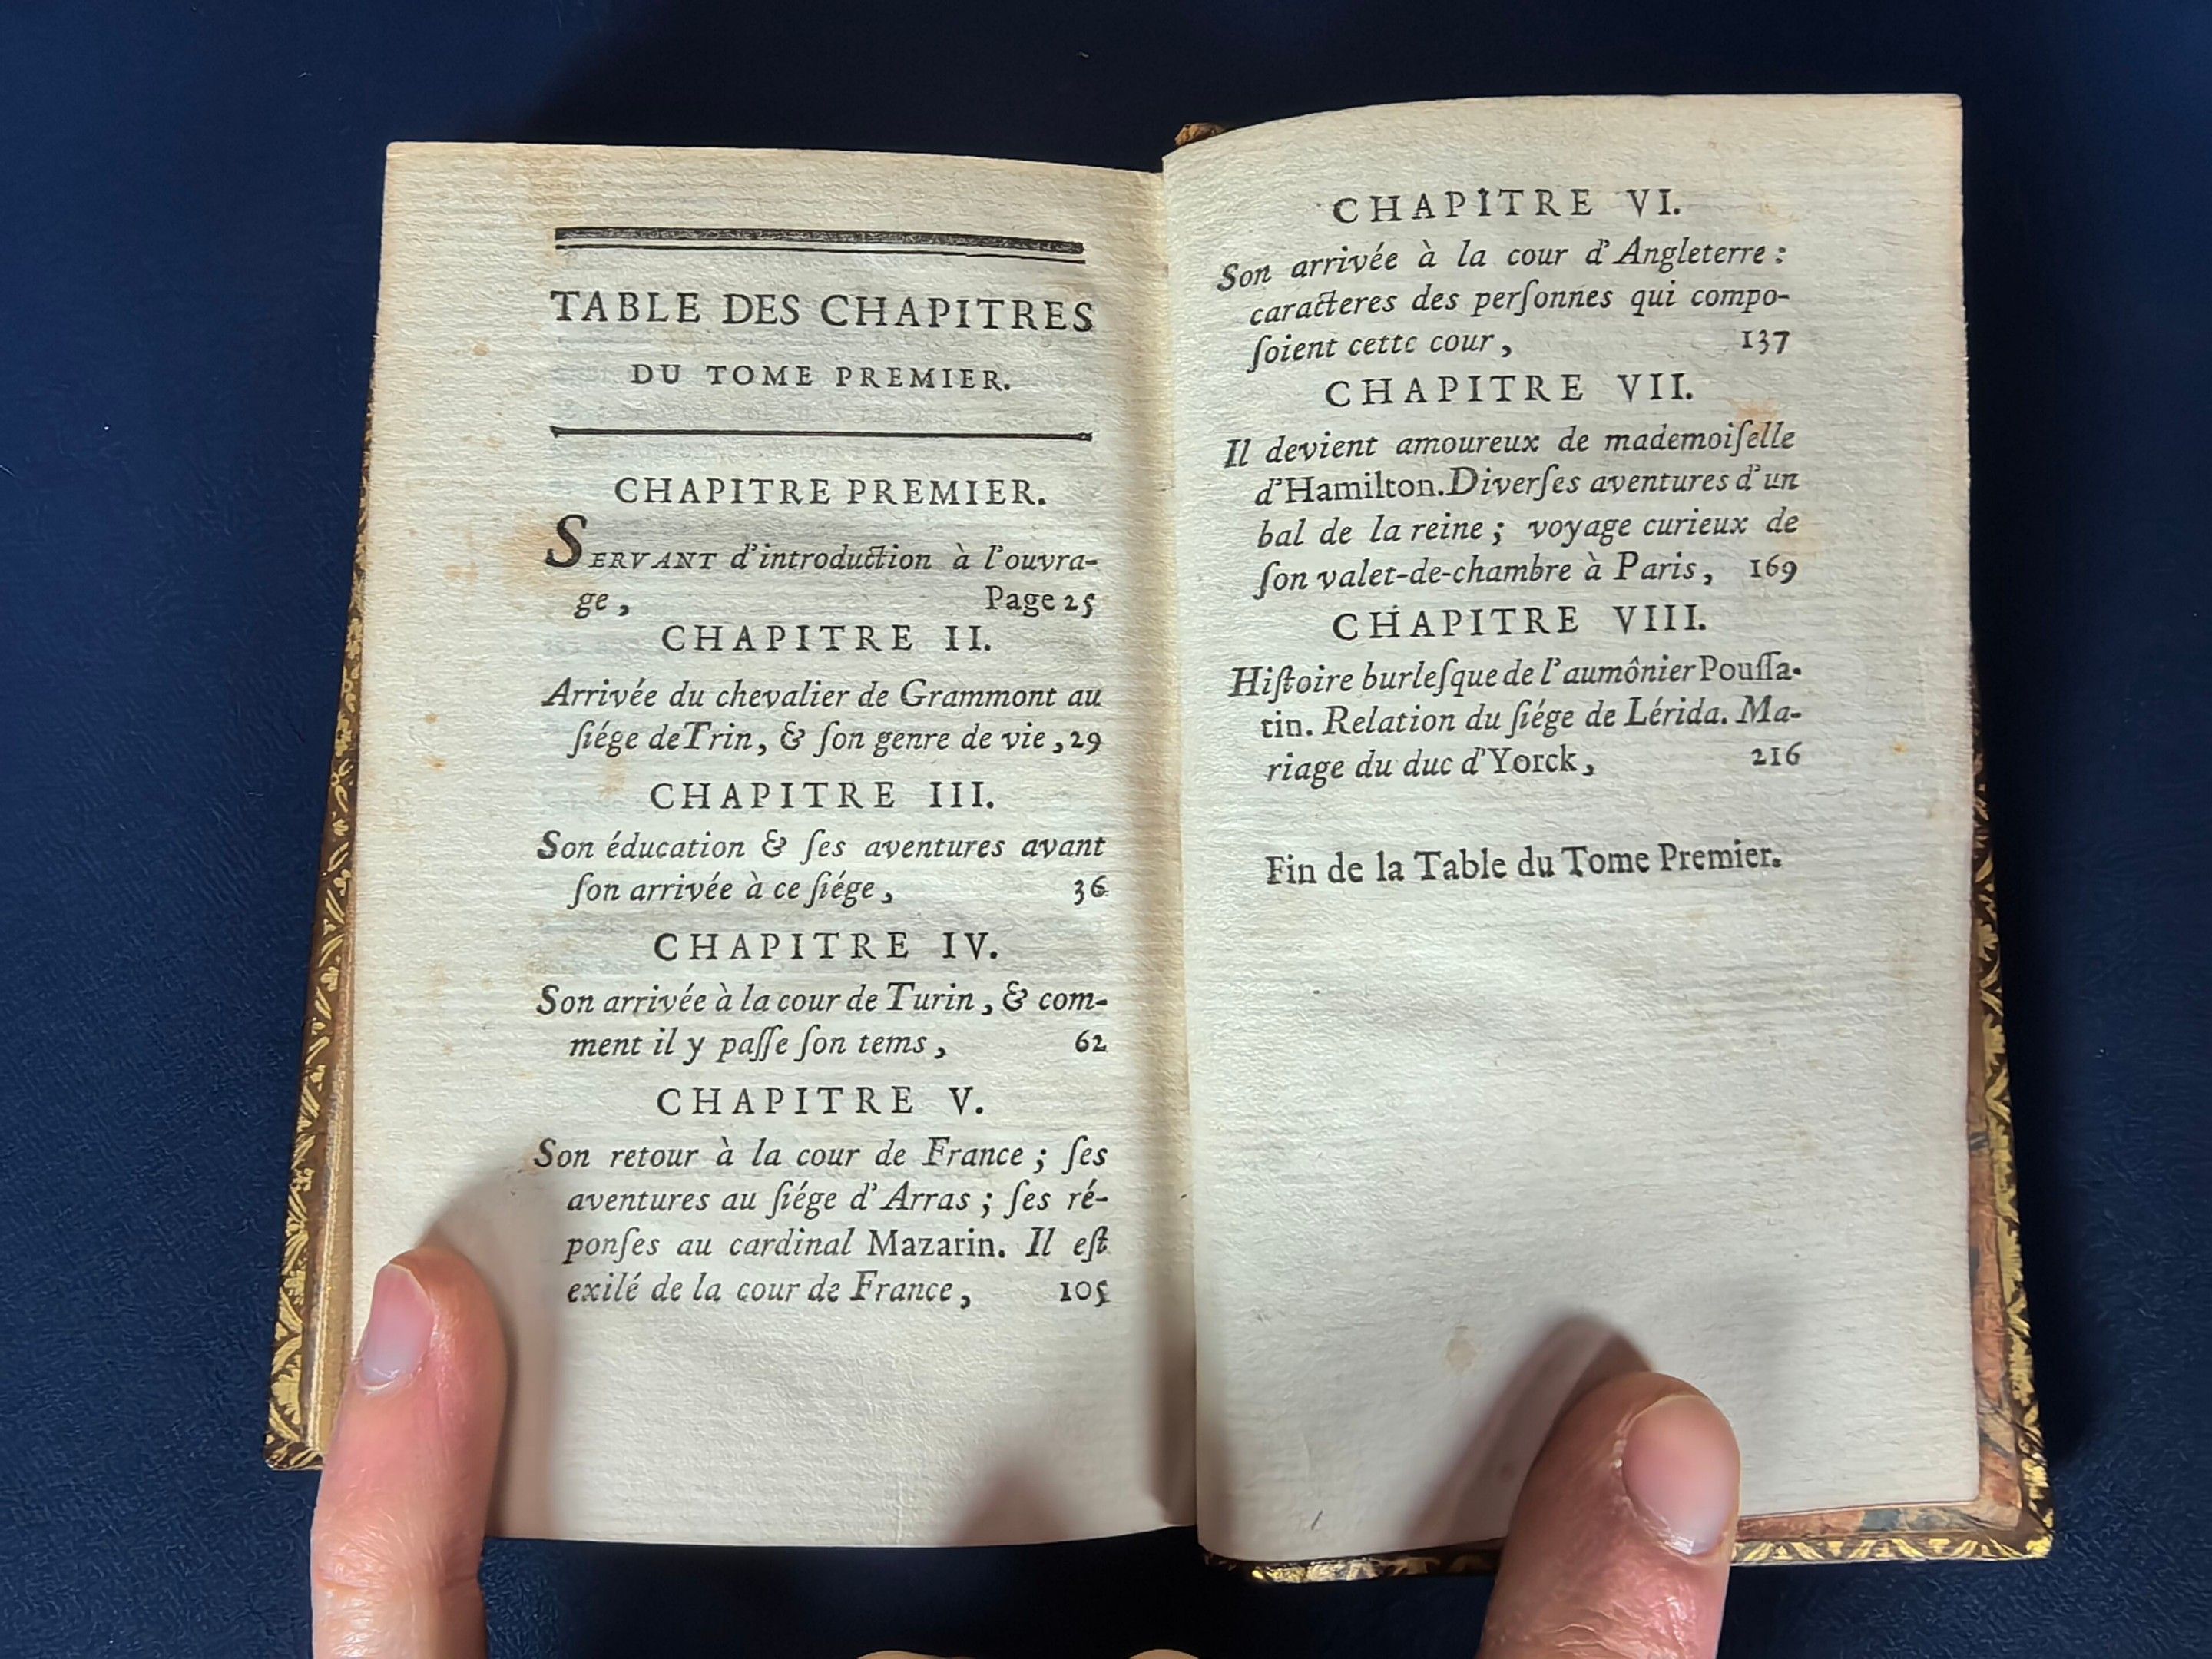 TABLE DES CHAPITRES
DU TOME PREMIER.
CHAPITRE PREMIER.
SERVANT d'introduction à l'ouvra-
ge, Page 25
CHAPITRE II.
Arrivée du chevalier de Grammont au
ſiége de Trin, & ſon genre de vie, 29
CHAPITRE III.
Son éducation & ſes aventures avant
ſon arrivée à ce ſiége, 36
CHAPITRE IV.
Son arrivée à la cour de Turin, & com-
ment il y paſſe ſon tems, 62
CHAPITRE V.
Son retour à la cour de France ; ſes
aventures au ſiége d'Arras ; ſes ré-
ponſes au cardinal Mazarin. Il eſt
exilé de la cour de France, 105
CHAPITRE VI.
Son arrivée à la cour d'Angleterre :
caracteres des perſonnes qui compo-
ſoient cette cour, 137
CHAPITRE VII.
Il devient amoureux de mademoiſelle
d'Hamilton. Diverſes aventures d'un
bal de la reine ; voyage curieux de
ſon valet-de-chambre à Paris, 169
CHAPITRE VIII.
Hiſtoire burleſque de l'aumônier Pouſſa-
tin. Relation du ſiége de Lérida. Ma-
riage du duc d'Yorck, 216
Fin de la Table du Tome Premier.